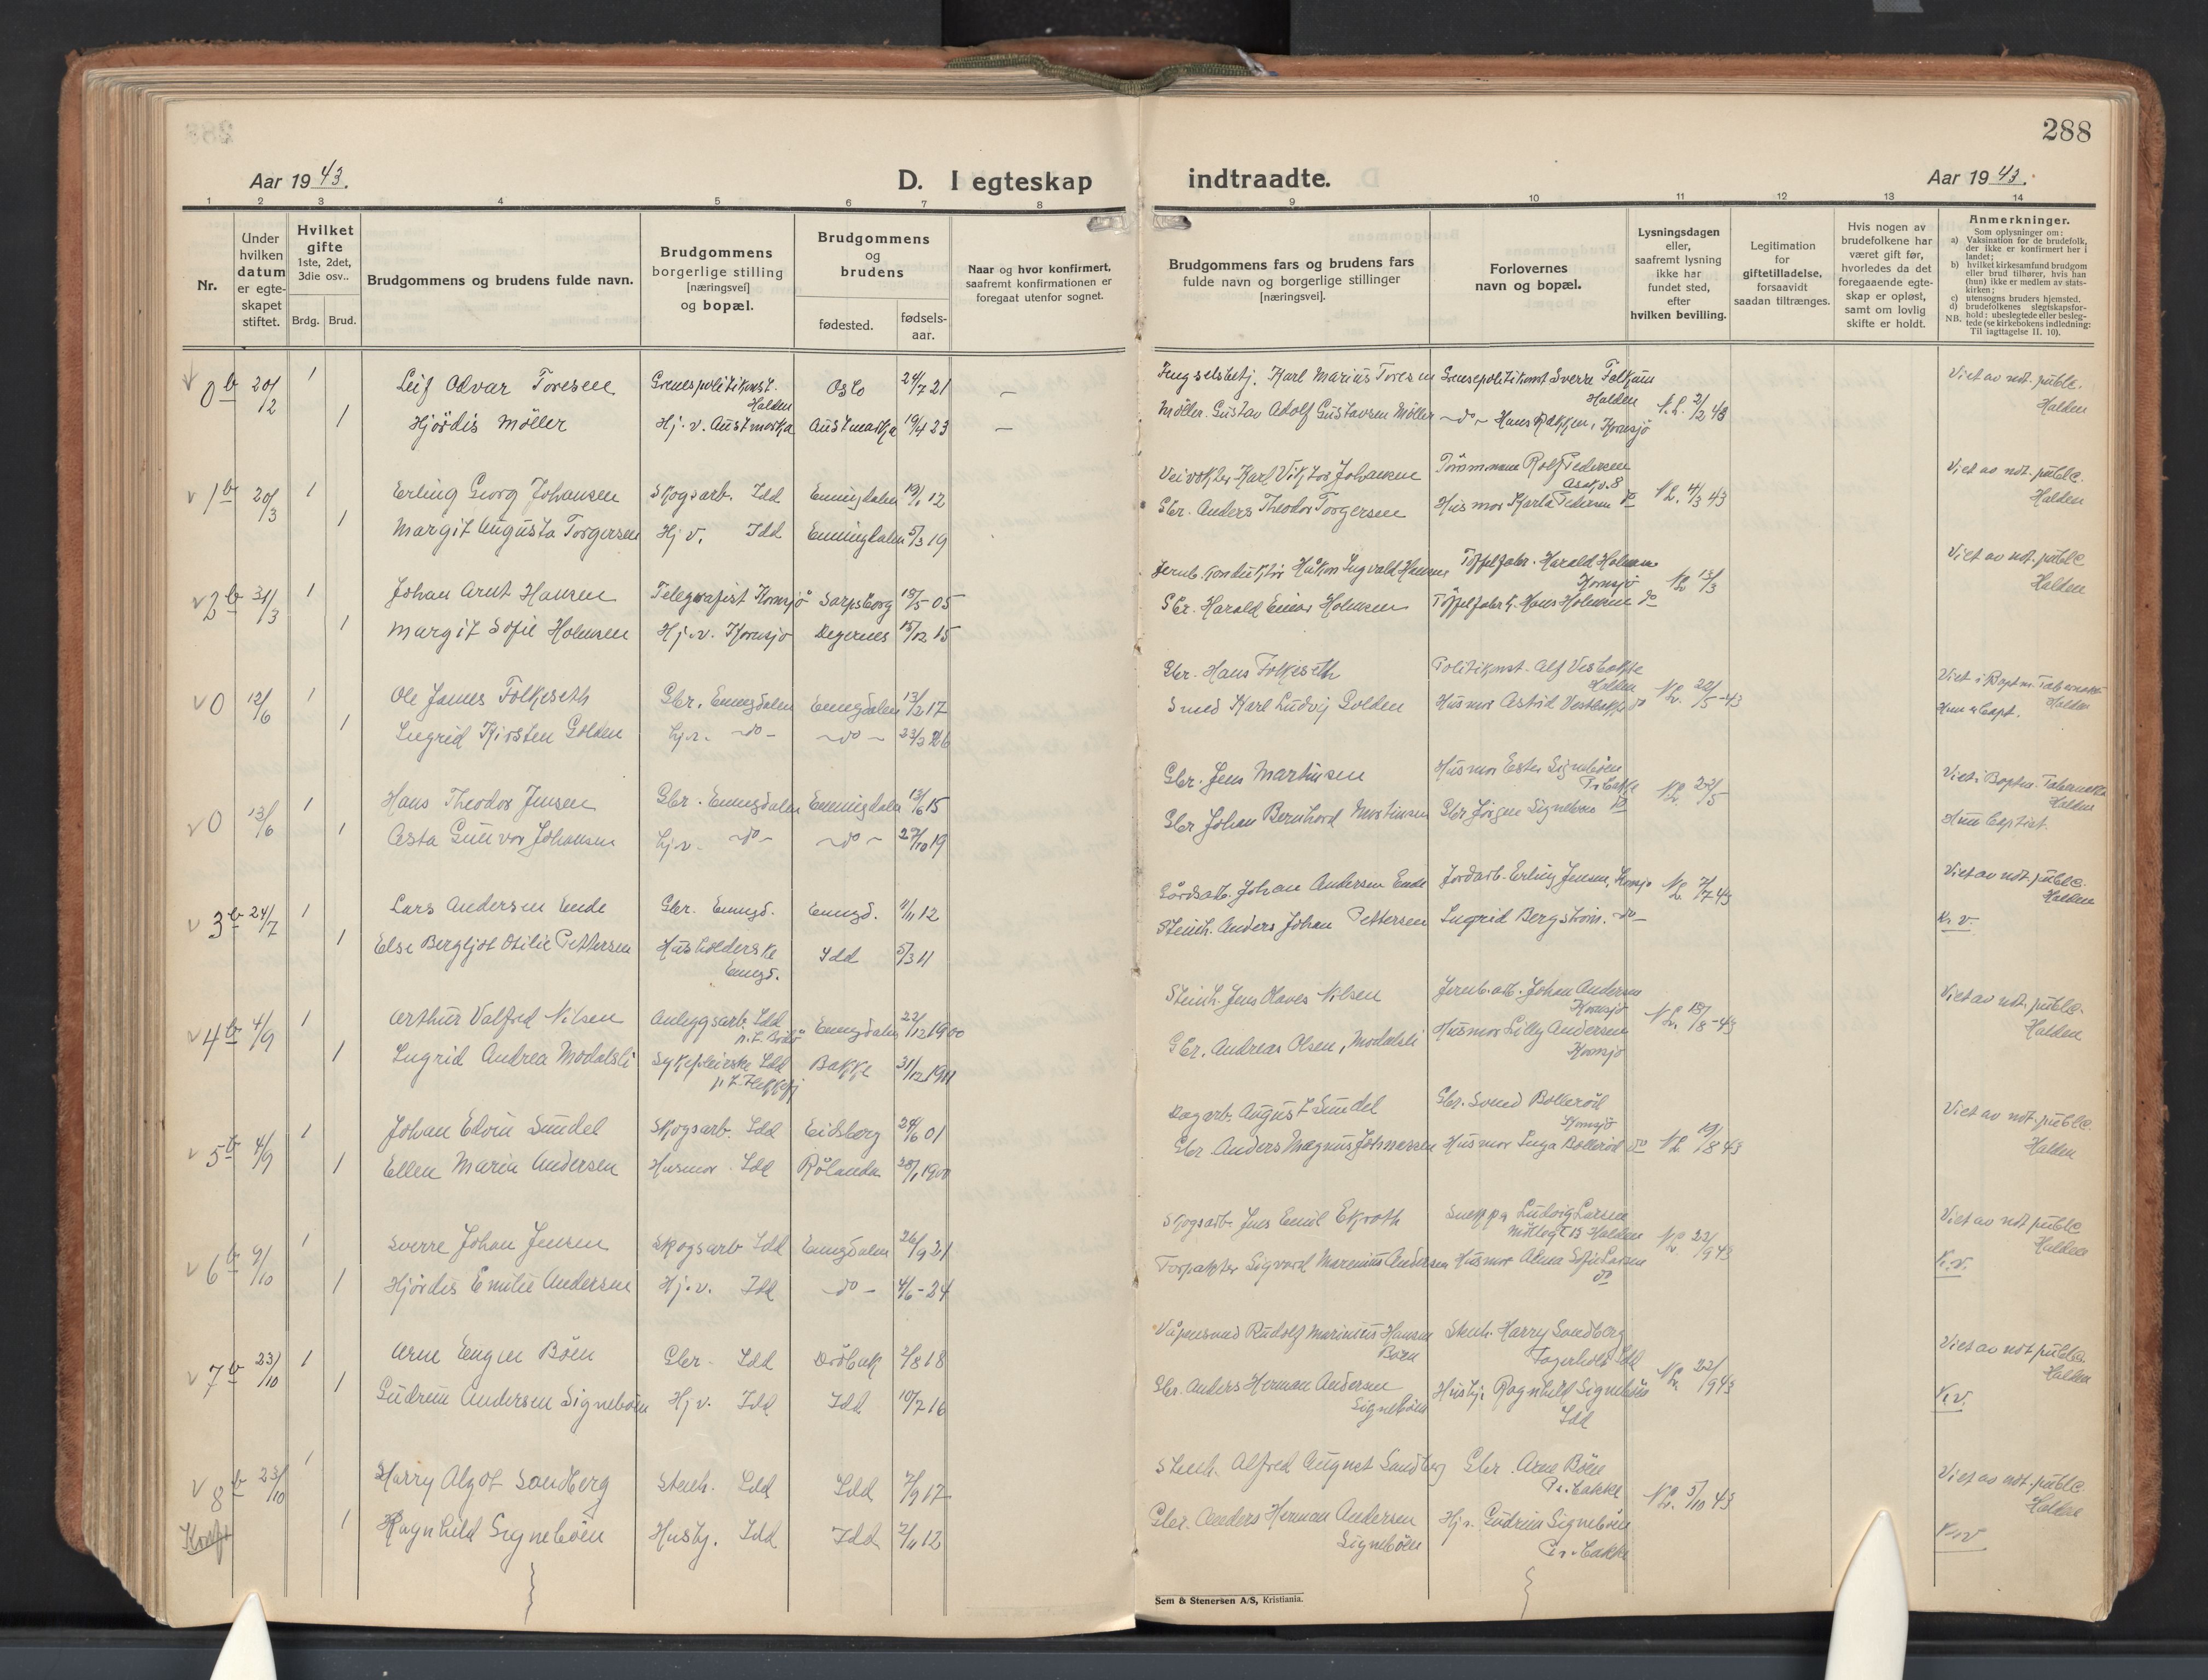 288
Aar 1943.
D. I egteskap
indtraadte.
Aar 1943.
1 2 3 4 5 6 7 8 9 10 11 12 13 14
Nr.
Under hvilken datum er egteskapet stiftet.
Hvilket gifte 1ste, 2det, 3die osv..
Brdg. Brud.
Brudgommens og brudens fulde navn.
Brudgommens borgerlige stilling [næringsvei] og bopæl.
Brudgommens og brudens
fødested.
fødselsaar.
Naar og hvor konfirmert, saafremt konfirmationen er foregaat utenfor sognet.
Brudgommens fars og brudens fars fulde navn og borgerlige stillinger [næringsvei].
Forlovernes navn og bopæl.
Lysningsdagen eller, saafremt lysning ikke har fundet sted, efter hvilken bevilling.
Legitimation for giftetilladelse, forsaavidt saadan tiltrænges.
Hvis nogen av brudefolkene har været gift før, hvorledes da det foregaaende egteskap er opløst, samt om lovlig skifte er holdt.
Anmerkninger.
Som oplysninger om:
a) Vaksination for de brudefolk, der ikke er konfirmert her i landet;
b) hvilket kirkesamfund brudgom eller brud tilhører, hvis han (hun) ikke er medlem av statskirken;
c) utensogns bruders hjemsted.
d) brudefolkenes slegtskapsforhold: ubeslegtede eller beslegtede (se kirkebokens indledning:
NB. Til iagttagelse II. 10).
0b 20/12 1 Leif Odvar Toresen Grensepolitikonst. Halden Oslo 24/7 21 — Karl Marius Toresen Grensepolitikonst Sverre Folkum Halden N.L. 2/2 43 Viet av not. public. Halden
1 Hjördis Möller Hj. v. Austmarka Austmarka 19/4 23 — Möller Gustav Adolf Gustavsen Möller —do— Hans Kornsjö
1b 20/3 1 Erling Georg Johansen Skogsarb. Idd Enningdalen 19/1 12 Veivokter Karl Viktor Johansen Tömmerm. Rolf Pedersen Asakv. 8 N.L. 4/3 43 Viet av not. public. Halden
1 Margit Augusta Torgersen Hj v. Idd Enningdalen 5/3 19 Gbr. Anders Theodor Torgersen Husmor Karla Pedersen do
2b 31/3 1 Johan Arnt Hansen Telegrafist Kornsjö Sarpsborg 18/5 05 Jernb. konduktör Håkon Ingvald Hansen Töffelfabr. Harald Holmsen Kornsjö NL 13/3 Viet av not. public Halden
1 Margit Sofie Holmsen Hj. v. Kornsjö Degernes 15/12 15 Gbr. Harald Einar Holmsen Töffelfabr. Hans Holmsen do
0 12/6 1 Ole James Folkeseth Gbr. Enngdalen Enngdalen 13/2 17 Gbr. Hans Folkeseth Politikonst. Alf Vestbakke Halden N.L. 22/5-43 Viet i Bapt. m. Tabernaklet Halden
1 Ingrid Kirsten Golden hj.v. —do— —do— 23/2 26 Smed Karl Ludvig Golden Husmor Astrid Vestbakke do Hun er bapt.
0 13/6 1 Hans Theodor Jensen Gbr. Enngdalen Enningdalen 13/6 15 Gbr. Jens Martinsen Husmor Ester Signebøen Pr. Bakke N.L. 22/5 Viet i Bapt. m. Tabernaklet Halden
1 Asta Gunvor Johansen hj.v. —do— —do— 27/10 19 Gbr Johan Bernhard Martinsen Gbr Jörgen Signeböen do Hun baptist.
3b 24/7 1 Lars Andersen Ende Gbr. Enngd. Enngd. 11/11 12 Gårdsarb. Johan Andersen Ende Jordarb. Erling Jensen, Kornsjö NL 7/7 43 Viet av not. public. Halden
1 Else Bergljot Otilie Pettersen Husholderske Enngd. Idd 5/3 11 Steinh. Anders Johan Pettersen Ingrid Bergström. -do- K. v.
4b 4/9 1 Arthur Valfred Nilsen Anleggsarb. Idd Enngdalen 22/12 1900 Steinh. Jens Olaves Nilsen Jernb. arb. Johan Andersen Kornsjö N.L. 18/8-43 Viet av not. public. Halden
1 Ingrid Andrea Modalsli Sykepleierske Idd Bakke 31/12 1911 Gbr. Andreas Olsen, Modalsli Husmor Lilly Andersen Kornsjö
5b 4/9 1 Johan Edvin Sundel Skogsarb. Idd Eidsberg 24/6 01 Dagarb. August Sundel Gbr. Svend Bolleröd Kornsjö NL 19/8 43 Viet av not. public. Halden
1 Ellen Marie Andersen Husmor Idd Rölanda 28/1 1900 Gbr. Anders Magnus Johnassen Husmor Inga Bolleröd do
6b 9/10 1 Sverre Johan Jensen Skogsarb Idd Enngdalen 26/9 21 Skogsarb. Jens Emil Ekroth Ludvig Larsen Halden N.L. 22/9 43 Viet av not. public Halden
1 Hjördis Emilie Andersen Hj. v. Idd —do— 4/6-24 Forpakter Sigvard Marenius Andersen Husmor Alma Sofie Larsen do K. v.
7b 23/10 1 Arne Engen Böen Gbr. Idd Dröbak 2/8 18 Våpensmed Rudolf Marinius Hansen Böen Stenh. Harry Sandberg Fagerholt Idd NL 22/9 43 Viet av not. public. Halden
1 Gudrun Andersen Signeböen Hj v. Idd Idd 10/7 16 Gbr. Anders Herman Andersen Signeböen Husbj. Ragnhild Signeböen Idd K. v.
8b 23/10 1 Harry Algot Sandberg Stenh. Idd Idd 7/9 17 Stenh. Alfred August Sandberg Gbr. Arne Böen Pr. Bakke N.L. 5/10 43 Viet av not. public. Halden
1 Ragnhild Signeböen Husbj. Idd Idd 2/11 12 Gbr. Anders Herman Andersen Signeböen Hj v. Gudrun Signeböen Pr. Bakke K. v
Sem & Stenersen A/S, Kristiania.